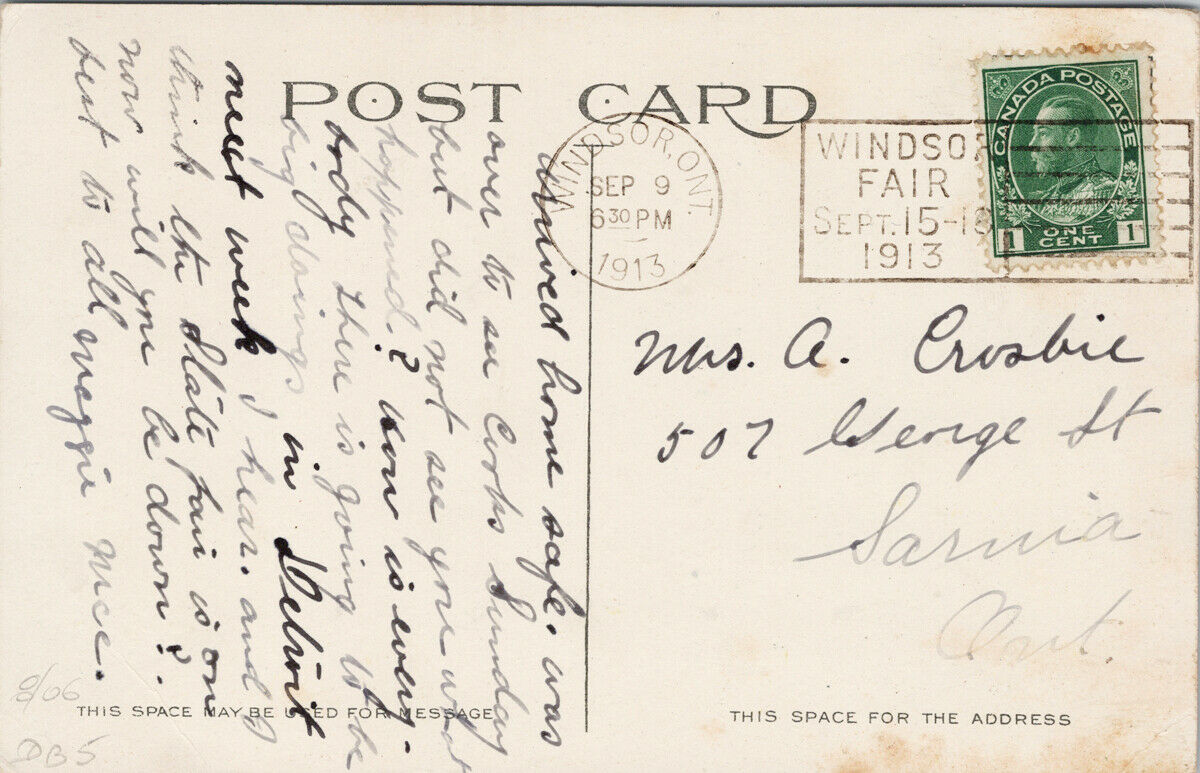 POST CARD
WINDSOR, ONT.
SEP 9
6 30 PM
1913
WINDSOR
FAIR
SEPT. 15-18
1913
CANADA POSTAGE
1 ONE CENT 1
arrived home safe. was
over to see Corks Sunday
but did not see you what
happened? how is every-
body there is going to be
big doings in Detroit
next week I hear. and I
think the State fair is on
now will you be down?.
best to all Meggie Mce.
Mrs. A. Crosbie
507 George St
Sarnia
Ont.
THIS SPACE MAY BE USED FOR MESSAGE
THIS SPACE FOR THE ADDRESS
8/06
DB5